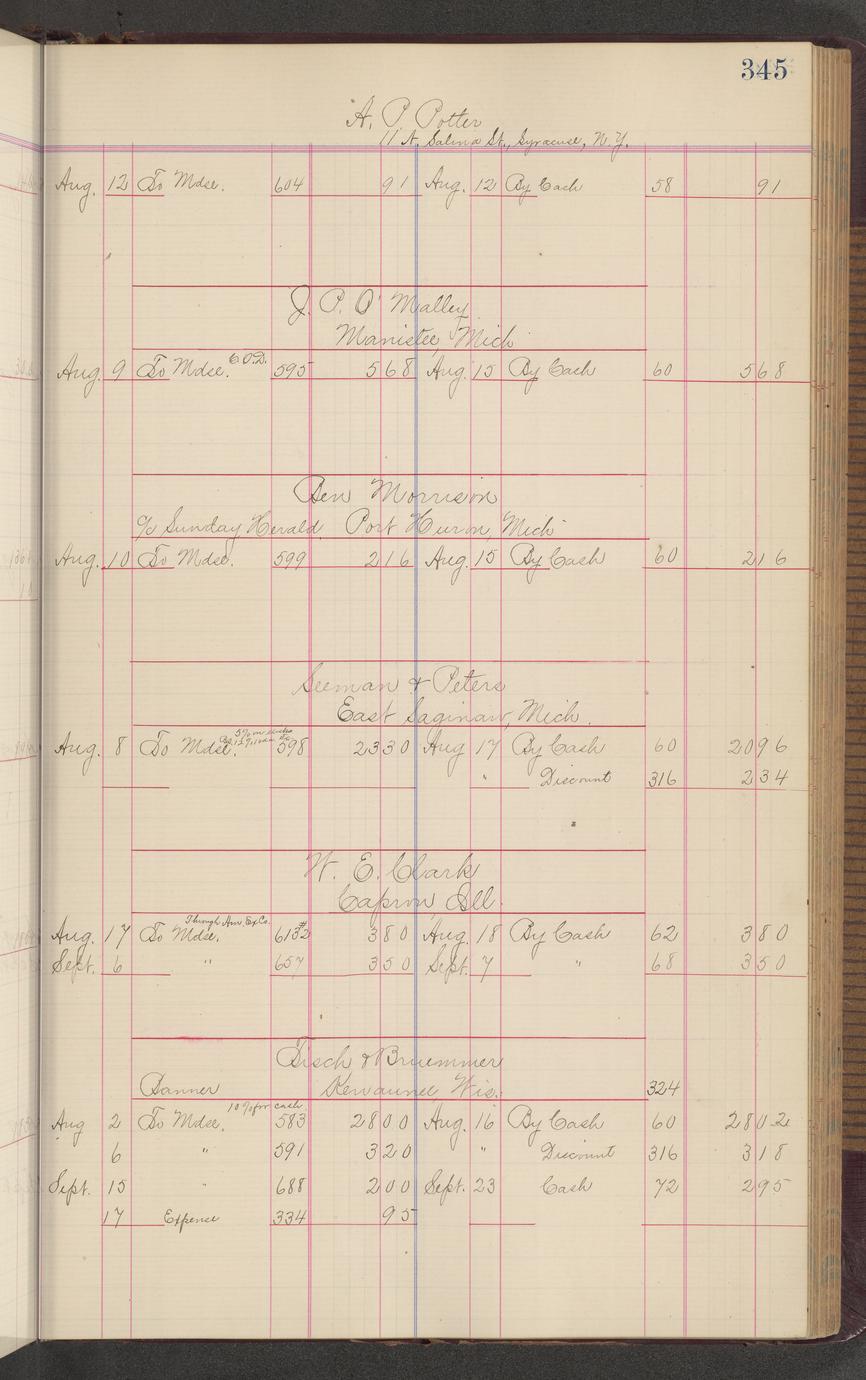 345
A. P. Potter
11 N. Salina St., Syracuse, N.Y.
Aug. 12 To Mdse. 604 91 Aug. 12 By Cash 58 91
J. P. O'Malley
Manistee, Mich
Aug. 9 To Mdse. C.O.D. 595 568 Aug. 15 By Cash 60 568
Ben Morrison
c/o Sunday Herald Port Huron, Mich
Aug. 10 To Mdse. 599 216 Aug. 15 By Cash 60 216
Seeman & Peters
East Saginaw, Mich.
5% on
Aug. 8 To Mdse. 598 2330 Aug 17 By Cash 60 2096
" Discount 316 234
W. E. Clark
Capron Ill.
Through Am. Ex. Co.
Aug. 17 To Mdse. 613 380 Aug. 18 By Cash 62 380
Sept. 6 " 657 350 Sept. 7 " 68 350
Tisch & Bruemmer
Banner Kewaunee Wis. 324
10% for cash
Aug 2 To Mdse. 583 2800 Aug. 16 By Cash 60 2802
6 " 591 320 " Discount 316 318
Sept. 15 " 688 200 Sept. 23 Cash 72 295
17 Expense 334 95